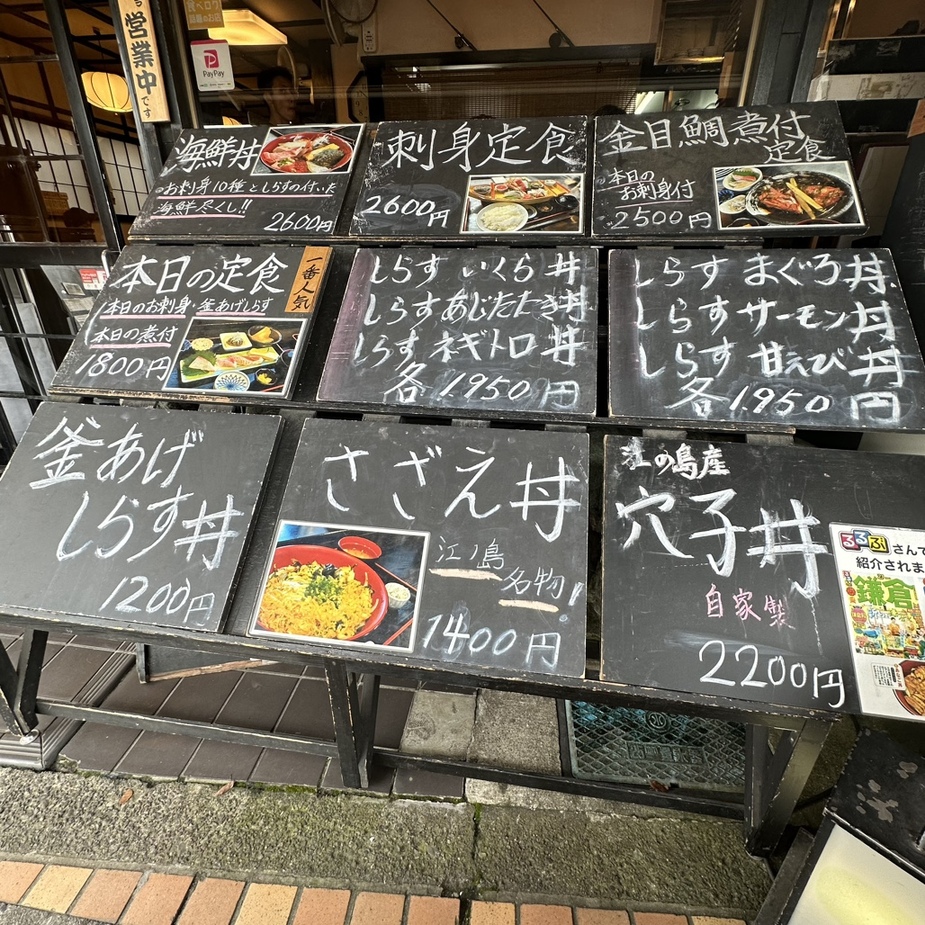 営業中です
食べログ
PayPay
海鮮丼
お刺身10種としらすの付いた
海鮮尽くし!!
2600円
刺身定食
2600円
金目鯛煮付
定食
本日の
お刺身付
2500円
本日の定食
一番人気
本日のお刺身・釜あげしらす
本日の煮付
1800円
しらす いくら 丼
しらす あじたたき丼
しらす ネギトロ 丼
各 1.950円
しらす まぐろ丼
しらす サーモン丼
しらす 甘えび丼
各 1.950 円
釜あげ
しらす丼
1200円
さざえ丼
江ノ島
名物!
1400円
江の島産
穴子丼
自家製
2200円
るるぶ さんで
紹介されま
鎌倉